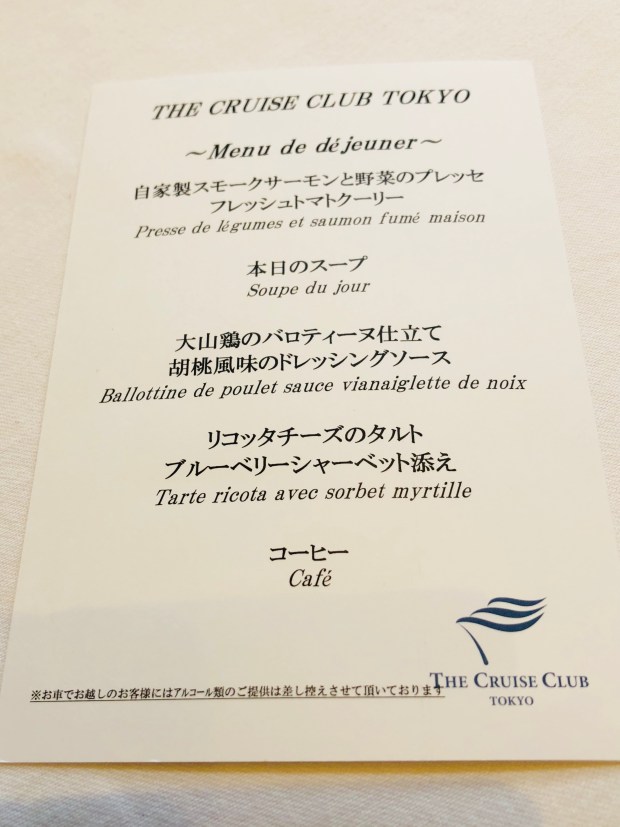 THE CRUISE CLUB TOKYO
～Menu de déjeuner～
自家製スモークサーモンと野菜のプレッセ
フレッシュトマトクーリー
Presse de légumes et saumon fumé maison
本日のスープ
Soupe du jour
大山鶏のバロティーヌ仕立て
胡桃風味のドレッシングソース
Ballottine de poulet sauce vianaiglette de noix
リコッタチーズのタルト
ブルーベリーシャーベット添え
Tarte ricota avec sorbet myrtille
コーヒー
Café
※お車でお越しのお客様にはアルコール類のご提供は差し控えさせて頂いております
THE CRUISE CLUB
TOKYO